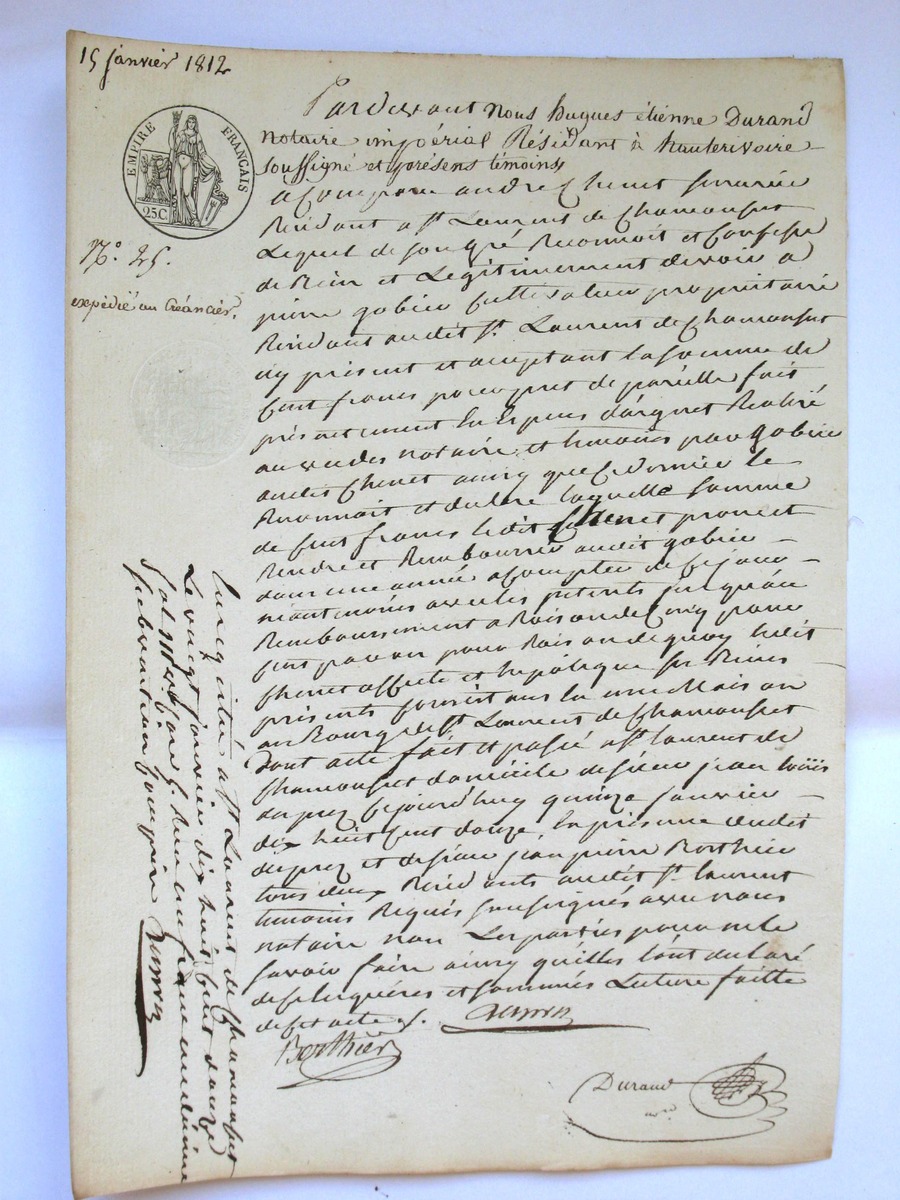 15 janvier 1812
EMPIRE FRANÇAIS
25 C.
N.º 25.
expédié au Créancier.
Pardevant Nous hugues étienne Durand
notaire impérial Résidant à hauterivoire
soussigné et présens témoins
a Comparu andre Chenet
Residant a St. Laurent de Chamousset
Lequel de son Gré Reconnoit et Confesse
de Bien et Légitimement devoir a
pierre gobier Cultivateur propriétaire
Residant audit St. Laurent de Chamousset
icy présent et aceptant la somme de
Cent francs pour pret de pareille fait
présentement En Espèces d'argent Realisé
au vu des notaire et temoins par gobier
audit Chenet ainsy que Ce dernier le
Reconnoit et declare laquelle somme
de Cent francs ledit Chenet promet
Rendre et Rembourser audit gobier
dans une année a Compter de Ce jour
néantmoins avec les interets jusquau
Remboursement a Raison de Cinq pour
Cent par an pour Raison de quoy ledit
Chenet affecte et hipoteque ses Biens
présents Consistans En une Maison
au Bourg de St. Laurent de Chamousset
Dont acte fait et passé a St. laurent de
Chamousset domicile de sieur jean louïs
duprez Cejourd'huy quinze janvier
dix huit Cent douze, En présence dudit
duprez et de sieur jean pierre Berthier
tous deux Residants audit St. laurent
temoins Requis soussignés avec nous
notaire non Les parties pour ne le
savoir faire ainsy quelles l'ont declaré
de Ce Enquéres et sommés Lecture faitte
de Cet acte
Berthier
Durand
Enregistré a St. Laurent de Chamousset
Le vingt janvier dix huit Cent douze